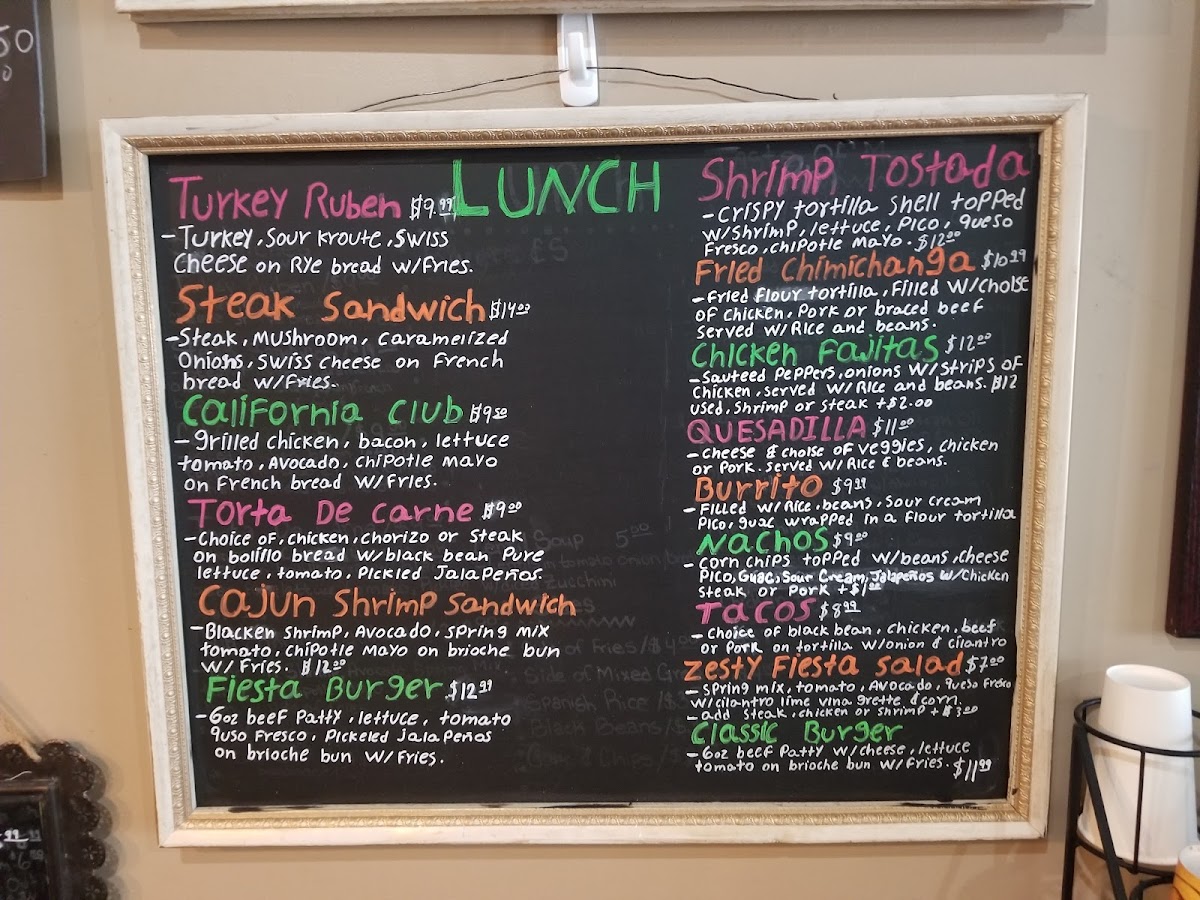 LUNCH
Turkey Ruben $9.99
- Turkey, Sour kroute, Swiss
Cheese on Rye bread w/Fries.
Steak Sandwich $14.00
- Steak, Mushroom, Caramelized
Onions, Swiss cheese on French
bread w/Fries.
California Club $9.50
- grilled chicken, bacon, lettuce
tomato, Avocado, chipotle mayo
on French bread w/Fries.
Torta De carne $9.00
- Choice of, chicken, chorizo or Steak
on bolillo bread w/black bean Pure
lettuce, tomato, Pickled Jalapeños.
Cajun Shrimp Sandwich
- Blacken Shrimp, Avocado, spring mix
tomato, chipotle mayo on brioche bun
w/ Fries. $12.00
Fiesta Burger $12.99
- 6oz beef Patty, lettuce, tomato
quso Fresco, Pickeled Jalapeños
on brioche bun w/Fries.
Shrimp Tostada
- Crispy tortilla shell topped
w/shrimp, lettuce, Pico, queso
Fresco, chipotle mayo. $12.00
Fried Chimichanga $10.99
- Fried Flour tortilla, Filled w/choise
of chicken, Pork or braced beef
served w/Rice and beans.
Chicken Fajitas $12.00
- Sauteed Peppers, onions w/strips of
Chicken, served w/Rice and beans. $12
used, Shrimp or Steak +$2.00
QUESADILLA $11.00
- cheese & choise of veggies, chicken
or Pork. served w/Rice & beans.
Burrito $9.99
- Filled w/Rice, beans, Sour cream
Pico, guac wrapped in a Flour tortilla
Nachos $9.00
- Corn chips topped w/beans, cheese
Pico, Guac, Sour Cream, Jalapeños w/Chicken
Steak or Pork +$1.00
Tacos $8.99
- Choice of black bean, chicken, beef
or Pork on tortilla w/onion & cilantro
Zesty Fiesta Salad $7.00
- Spring mix, tomato, Avocado, queso Fresco
w/cilantro lime vina grette & corn.
- add steak, chicken or shrimp +$3.00
Classic Burger
- 6oz beef Patty w/cheese, lettuce
tomato on brioche bun w/Fries. $11.99